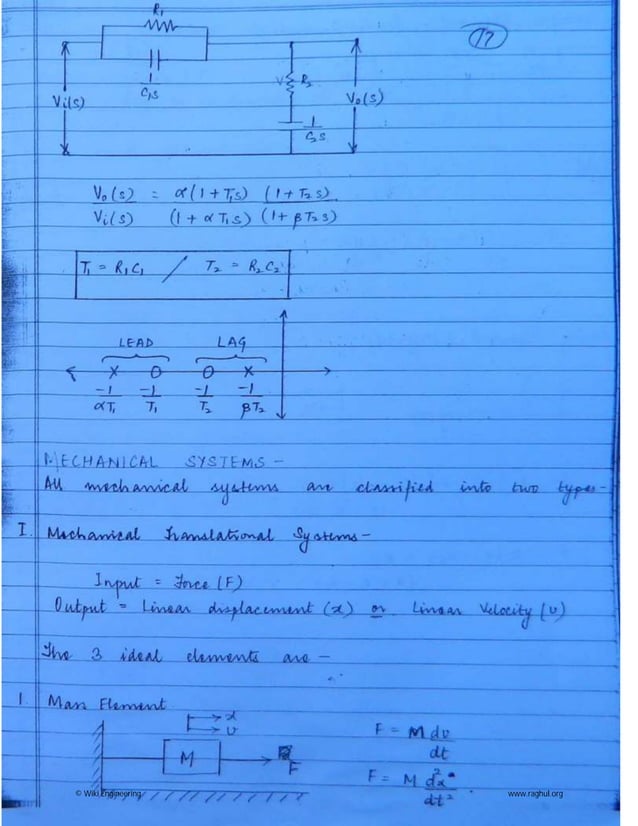 17
R₁
1/C₁s
Vi(s)
R₂
Vo(s)
1/C₂s
Vo(s)/Vi(s) = α(1+T₁s) (1+T₂s) / (1+αT₁s) (1+βT₂s)
T₁ = R₁C₁ / T₂ = R₂C₂
LEAD LAG
-1/αT₁ -1/T₁ -1/T₂ -1/βT₂
MECHANICAL SYSTEMS -
All mechanical systems are classified into two types-
I. Mechanical Translational Systems-
Input = Force (F)
Output = Linear displacement (x) or Linear Velocity (v)
The 3 ideal elements are -
1. Mass Element
x
v
M
F
F = M dv/dt
F = M d²x/dt²
© Wiki Engineering www.raghul.org